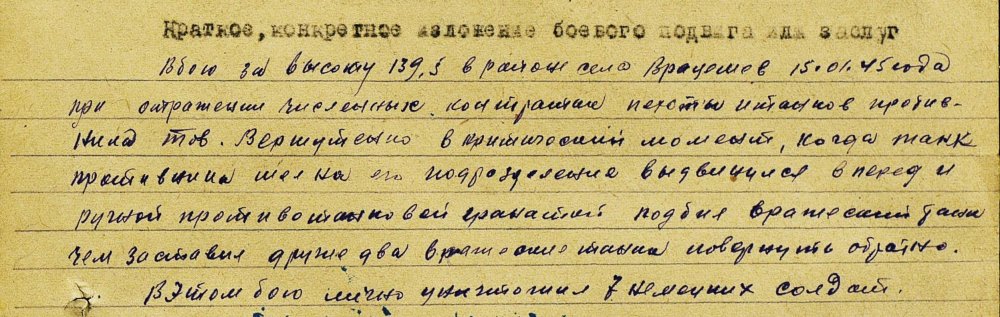 Краткое, конкретное изложение боевого подвига или заслуг
В бою за высоту 139,3 в районе села Врацешев 15.01.45 года
при отражении численных контратак пехоты и танков против-
ника тов. Вершутенко в критический момент, когда танк
противника шел на его подразделение выдвинулся вперед и
ручной противотанковой гранатой подбил вражеский танк
чем заставил друже два вражеские танка повернуть обратно.
В этом бою лично уничтожил 7 немецких солдат.